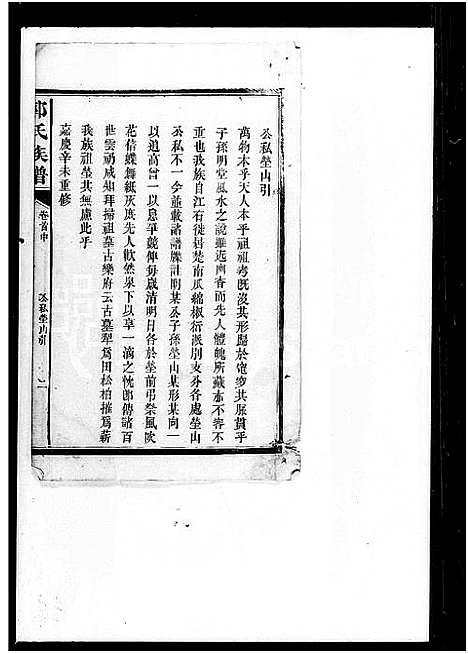 公私塋山引
萬物本乎天人本乎祖祖考既沒其形歸於窀穸其脈貫乎
子孫明堂風水之說雖近幽杳而先人體魄所藏亦不容不
重也我族自江右徙居楚南瓜緜椒衍派別支分各處塋山
公私不一今並載諸譜牒註明某公子孫塋山某形某向一
以追高曾一以息爭競俾每歲清明日各於塋前弔祭風吹
花信蝶舞紙灰庶先人歡然泉下以享一滴之忱卽傳諸百
世雲礽咸知拜掃祖墓古樂府云古墓犁爲田松柏摧爲薪
我族祖塋其無慮此乎
嘉慶辛未重修
氏族譜
卷首中
公私塋山引
二